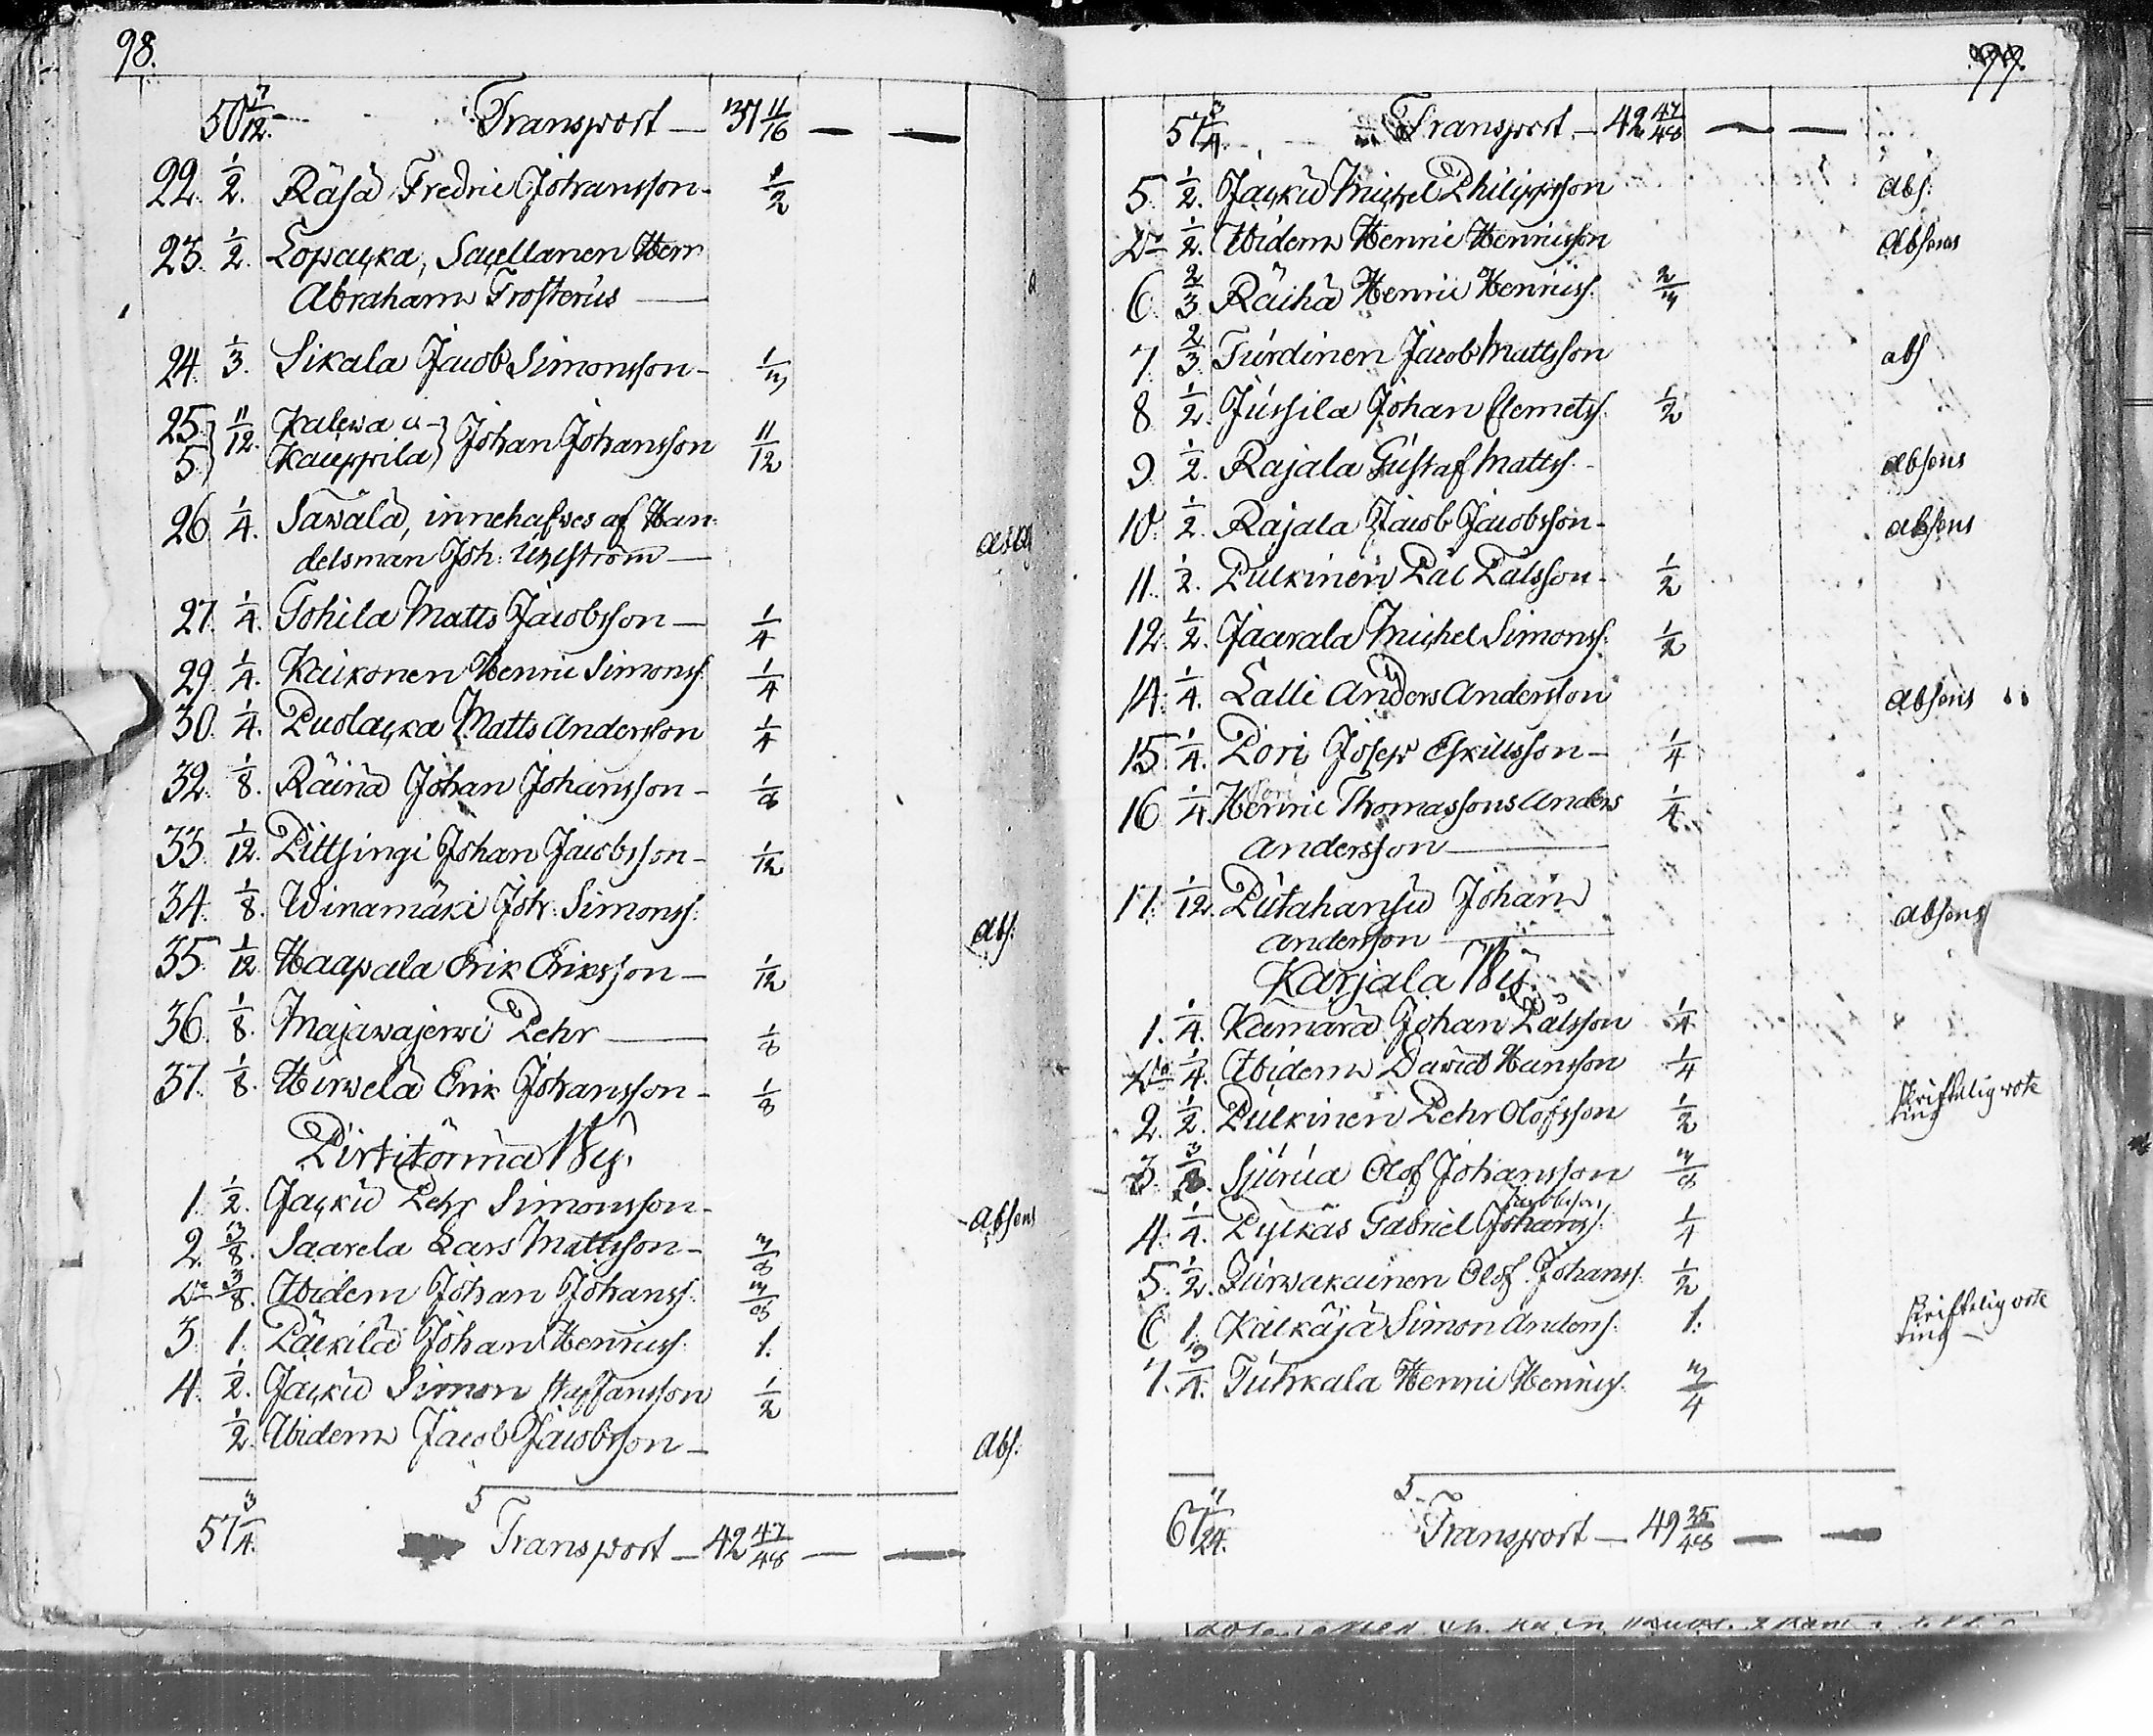 98.
50 7/12. Transport — 37 11/16 — —
22. 1/2. Räsä Fredric Johansson - 1/2
23. 1/2. Lopacka, Sacellanen Herr
Abraham Frosterus —
24. 1/3. Sikala Jacob Simonsson - 1/3
25. } 11/12. Kalewa u- } Johan Johansson 11/12
5. } Kauppila }
26. 1/4. Sawälä, innehafwes af Han-
delsman Joh: Uhlström —
27. 1/4. Tohila Matts Jacobsson — 1/4
29. 1/4. Kaikonen Henric Simonss. 1/4
30. 1/4. Puolacka Matts Andersson 1/4
32. 1/8. Räinä Johan Johansson - 1/8
33. 1/12. Pittsingi Johan Jacobsson - 1/12
34. 1/8. Winamäki Joh: Simonss: Abs:
35. 1/12 Haapala Erik Eriksson — 1/12
36. 1/8. Majawajerwi Pehr — 1/8
37. 1/8. Hirwelä Erik Johansson - 1/8
Pirttitörmä By.
1. 1/2. Jackù Pehr Simonsson - Absens
2. 3/8. Saarela Lars Mattsson - 3/8
Do 3/8. Ibidem Johan Johanss: 3/8
3. 1. Päckilä Johan Henricss. 1.
4. 1/2. Jackù Simon Staffansson 1/2
1/2. Ibidem Jacob Jacobsson - Abs.
57 3/4. 5 Transport — 42 47/48 — —
99.
57 3/4. Transport — 42 47/48 — —
5. 1/2. Jackù Michel Philippsson Abs:
Do 1/2. Ibidem Henric Henricsson Absens
6. 2/3 Räihä Henric Henricss. 2/3
7. 2/3. Turdinen Jacob Mattsson abs
8 1/2. Jussila Johan Clemetss. 1/2
9 1/2. Rajala Gustaf Mattss. - absens
10. 1/2. Rajala Jacob Jacobsson - absens
11. 1/2. Pulkinen Pål Pålsson - 1/2
12. 1/2. Jaarala Michel Simonss: 1/2
14. 1/4. Lalli Anders Andersson Absens
15. 1/4. Pori Josep Eskillsson — 1/4
16 1/4. Henric Thomassons Anders 1/4.
Andersson —
17. 1/12. Putahansu Johan Absens
Andersson —
Karjala By.
1. 1/4. Kämärä Johan Pålsson 1/4
Do 1/4. Ibidem David Hansson 1/4
2. 1/2. Pulkinen Pehr Olofsson 1/2 Skriftelig vote
ring
3. 3/8. Sjurua Olof Johansson 3/8
4. 1/4. Pylkäs Gabriel Johanss: 1/4
5. 1/2. Turwakainen Olof Johanss: 1/2
6 1. Kälkäjä Simon Anderss. 1. skriftelig vote
ring —
7. 3/4. Tuhkala Henric Henricss. 3/4
67 7/24. 5. Transport — 49 35/48 — —